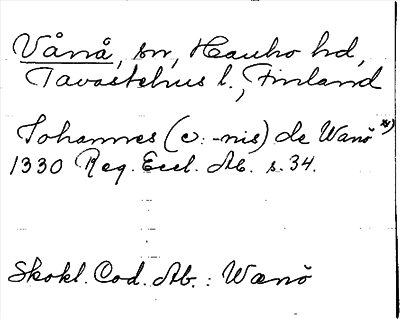 Vånå, sn, Hauho hd,
Tavastehus l., Finland
Johannes (c: -nis) de Wanö *)
1330 Reg. Eccl. Ab. s. 34.
Skokl. Cod. Ab. : Wænö